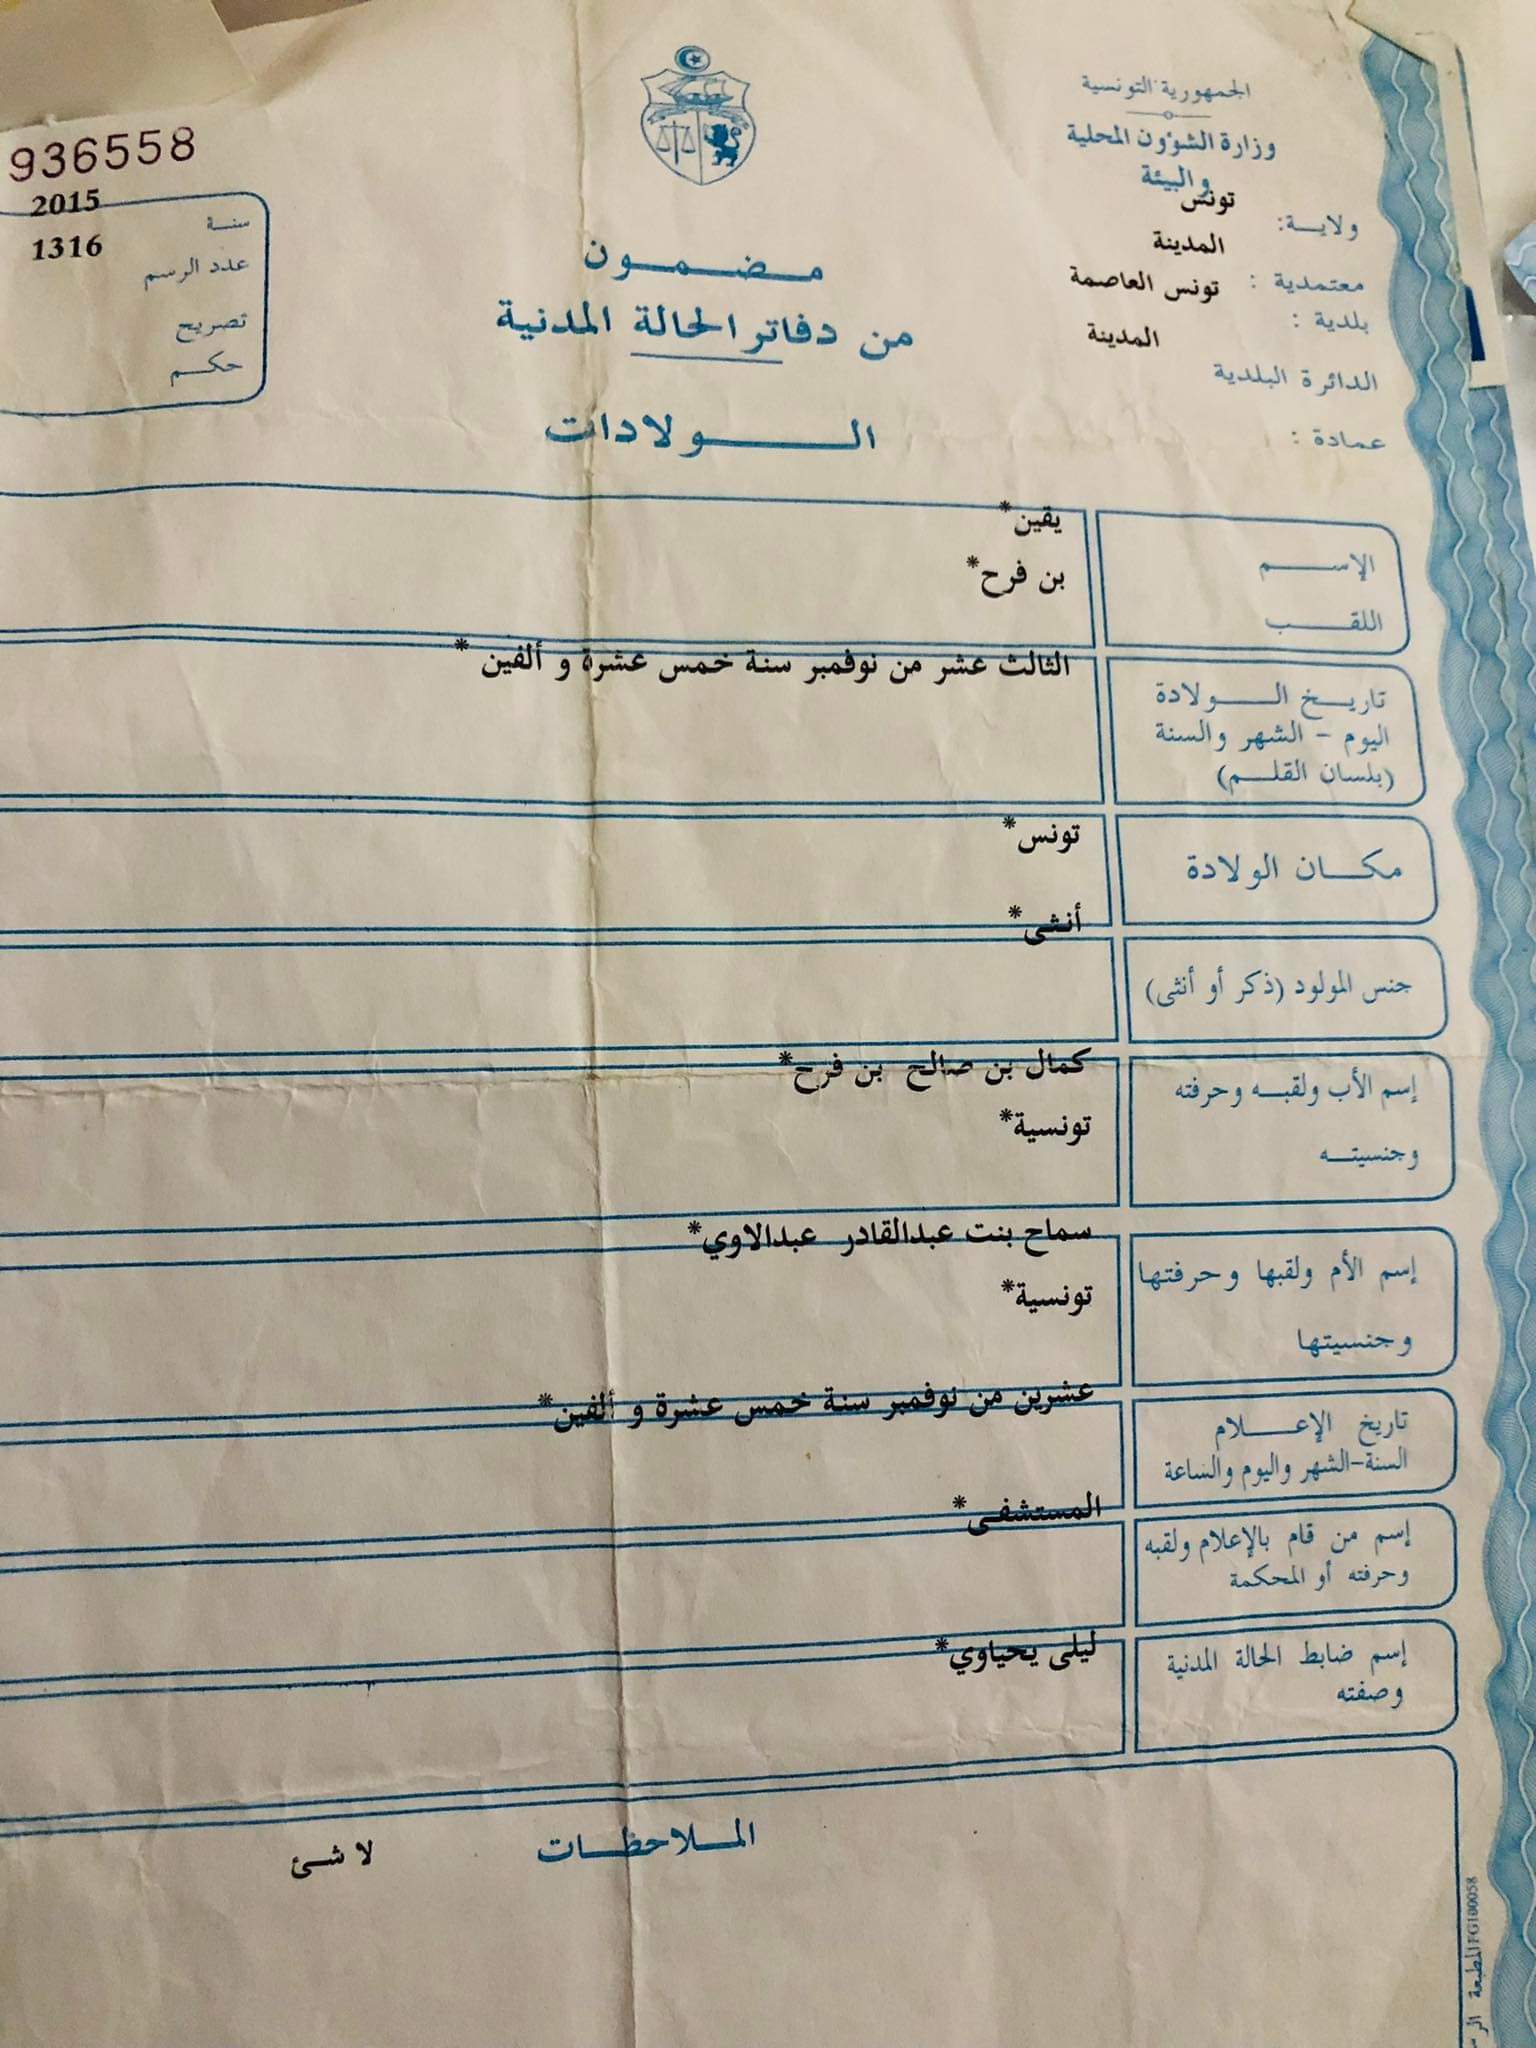 الجمهورية التونسية
وزارة الشؤون المحلية
والبيئة
ولاية: تونس
معتمدية : المدينة
بلدية : تونس العاصمة
الدائرة البلدية المدينة
عمادة :
936558
سنة 2015
عدد الرسم 1316
تصريح
حكم
مضمون
من دفاتر الحالة المدنية
الولادات
الإسم يقين*
اللقب بن فرح*
الثالث عشر من نوفمبر سنة خمس عشرة و ألفين *
تاريخ الولادة
اليوم - الشهر والسنة
(بلسان القلم)
تونس*
مكان الولادة
أنثى*
جنس المولود (ذكر أو أنثى)
كمال بن صالح بن فرح*
إسم الأب ولقبه وحرفته
تونسية*
وجنسيته
سماح بنت عبدالقادر عبدالاوي*
إسم الأم ولقبها وحرفتها
تونسية*
وجنسيتها
عشرين من نوفمبر سنة خمس عشرة و ألفين*
تاريخ الإعلام
السنة-الشهر واليوم والساعة
المستشفى*
إسم من قام بالإعلام ولقبه
وحرفته أو المحكمة
ليلى يحياوي*
إسم ضابط الحالة المدنية
وصفته
الملاحظات لا شئ
المطبعة FG100058